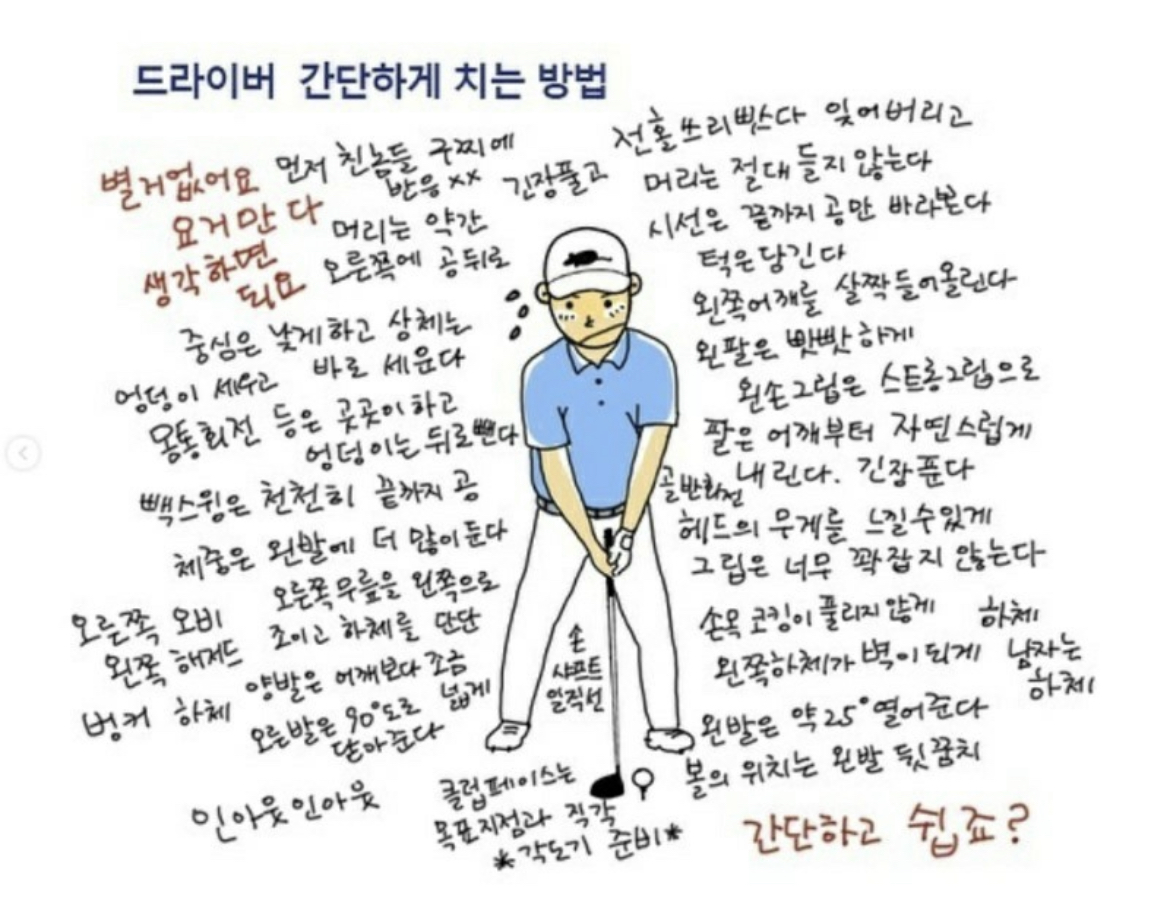 드라이버 간단하게 치는 방법
별거없어요
요거만 다
생각하면
되요
먼저 친놈들 구찌에
반응 xx 긴장풀고
머리는 약간
오른쪽에 공뒤로
중심은 낮게하고 상체는
바로 세운다
엉덩이 세우고
몸통회전 등은 곳곳이하고
엉덩이는 뒤로뺀다
빽스윙은 천천히 끝까지 공
체중은 왼발에 더 많이둔다
오른쪽무릎을 왼쪽으로
조이고 하체를 단단
오른쪽 오비
왼쪽 해저드
벙커 하체
양발은 어깨보다 조금
넓게
오른발은 90°도로
닫아준다
인아웃인아웃
전홀쓰리빳다 잊어버리고
머리는 절대 들지 않는다
시선은 끝까지 공만 바라본다
턱은당긴다
왼쪽어깨를 살짝들어올린다
왼팔은 빳빳하게
왼손그립은 스트롱그립으로
팔은 어깨부터 자연스럽게
내린다. 긴장푼다
골반회전
헤드의 무게를 느낄수있게
그립은 너무 꽉잡지 않는다
손목 코킹이 풀리지않게
하체
왼쪽하체가 벽이되게
남자는
하체
왼발은 약25°열어준다
볼의 위치는 왼발 뒷꿈치
손
샤프트
일직선
클럽페이스는
목표지점과 직각
*각도기 준비*
간단하고 쉽죠?